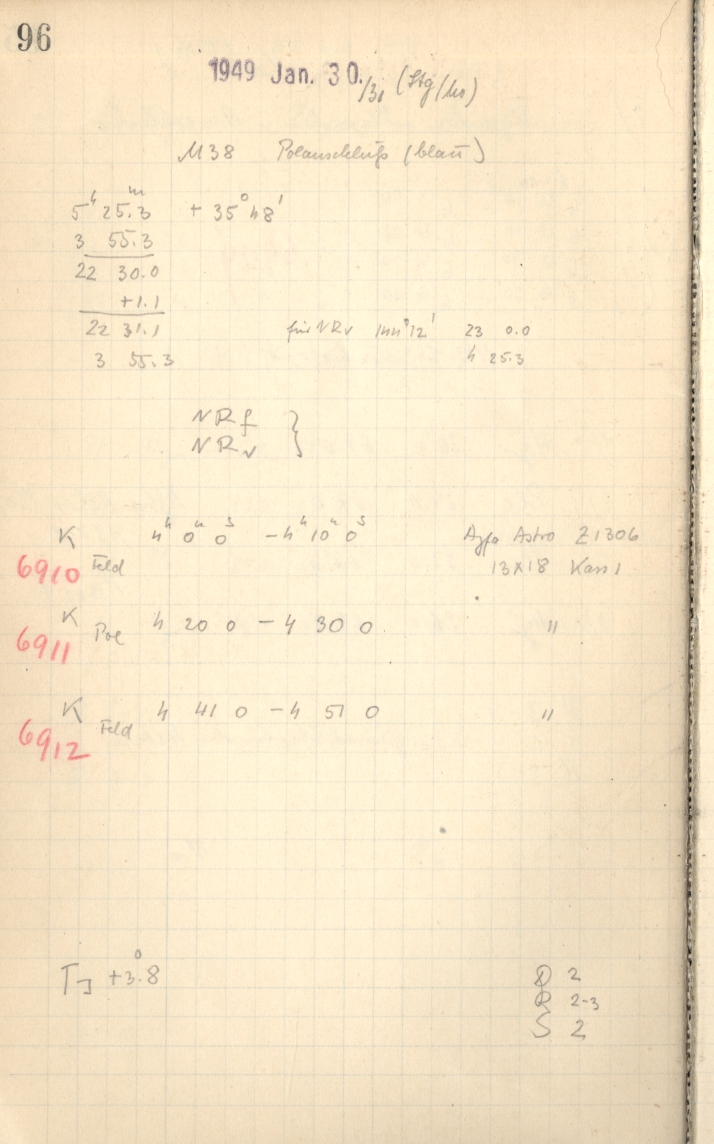 96
1949 Jan. 30./31 (Stg/hs)
M38 Polanschluß (blau)
5ʰ 25.3ᵐ + 35° 48'
3 55.3
22 30.0
+1.1
22 31.1 für NRv 144°12' 23 0.0
3 55.3 4 25.3
NRf }
NRv
K 4ʰ 0ᵐ 0ˢ - 4ʰ 10ᵐ 0ˢ Agfa Astro Z1306
6910 Feld 13×18 Kass 1
K 4 20 0 - 4 30 0 "
6911 Pol
K 4 41 0 - 4 51 0 "
6912 Feld
TJ +3.°8 D 2
R 2-3
S 2